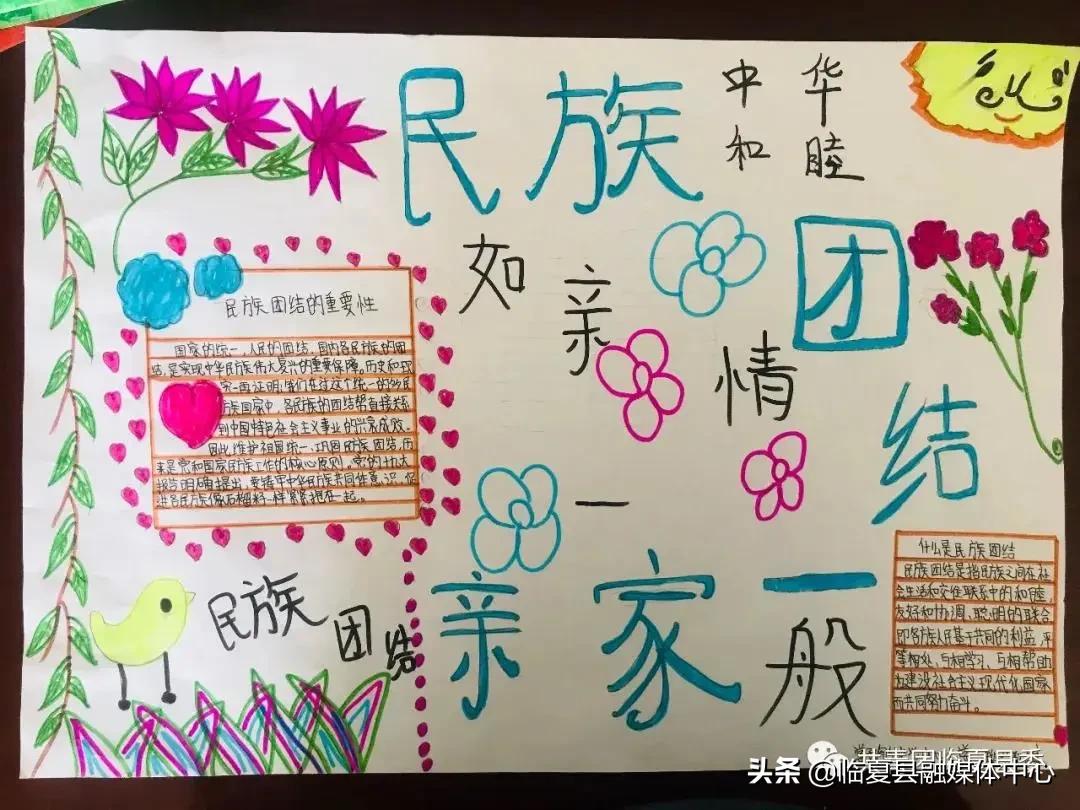 民族
中华
和睦
团
结
如
亲
情
一
亲家一
般
民族团结的重要性
国家的统一,人民的团结,国内各民族的团
结,是实现中华民族伟大复兴的重要保障。历史和现
实一再证明:我们在这个统一的多民
族国家中,各民族的团结帮直接关系
到中国特色社会主义事业的兴衰成败。
因此维护祖国统一、巩固民族团结,历
来是党和国家民族工作的核心原则。党的十九大
报告明确提出,要铸牢中华民族共同体意识,促
进各民族像石榴籽一样紧紧抱在一起。
民族团结
什么是民族团结
民族团结是指民族之间在社
会生活和交往联系中的和睦,
友好和协调、联合
即各族人民基于共同的利益,平
等相处、互相学习、互相帮助
为建设社会主义现代化国家
而共同努力奋斗。
共青团临夏县委
头条@临夏县融媒体中心